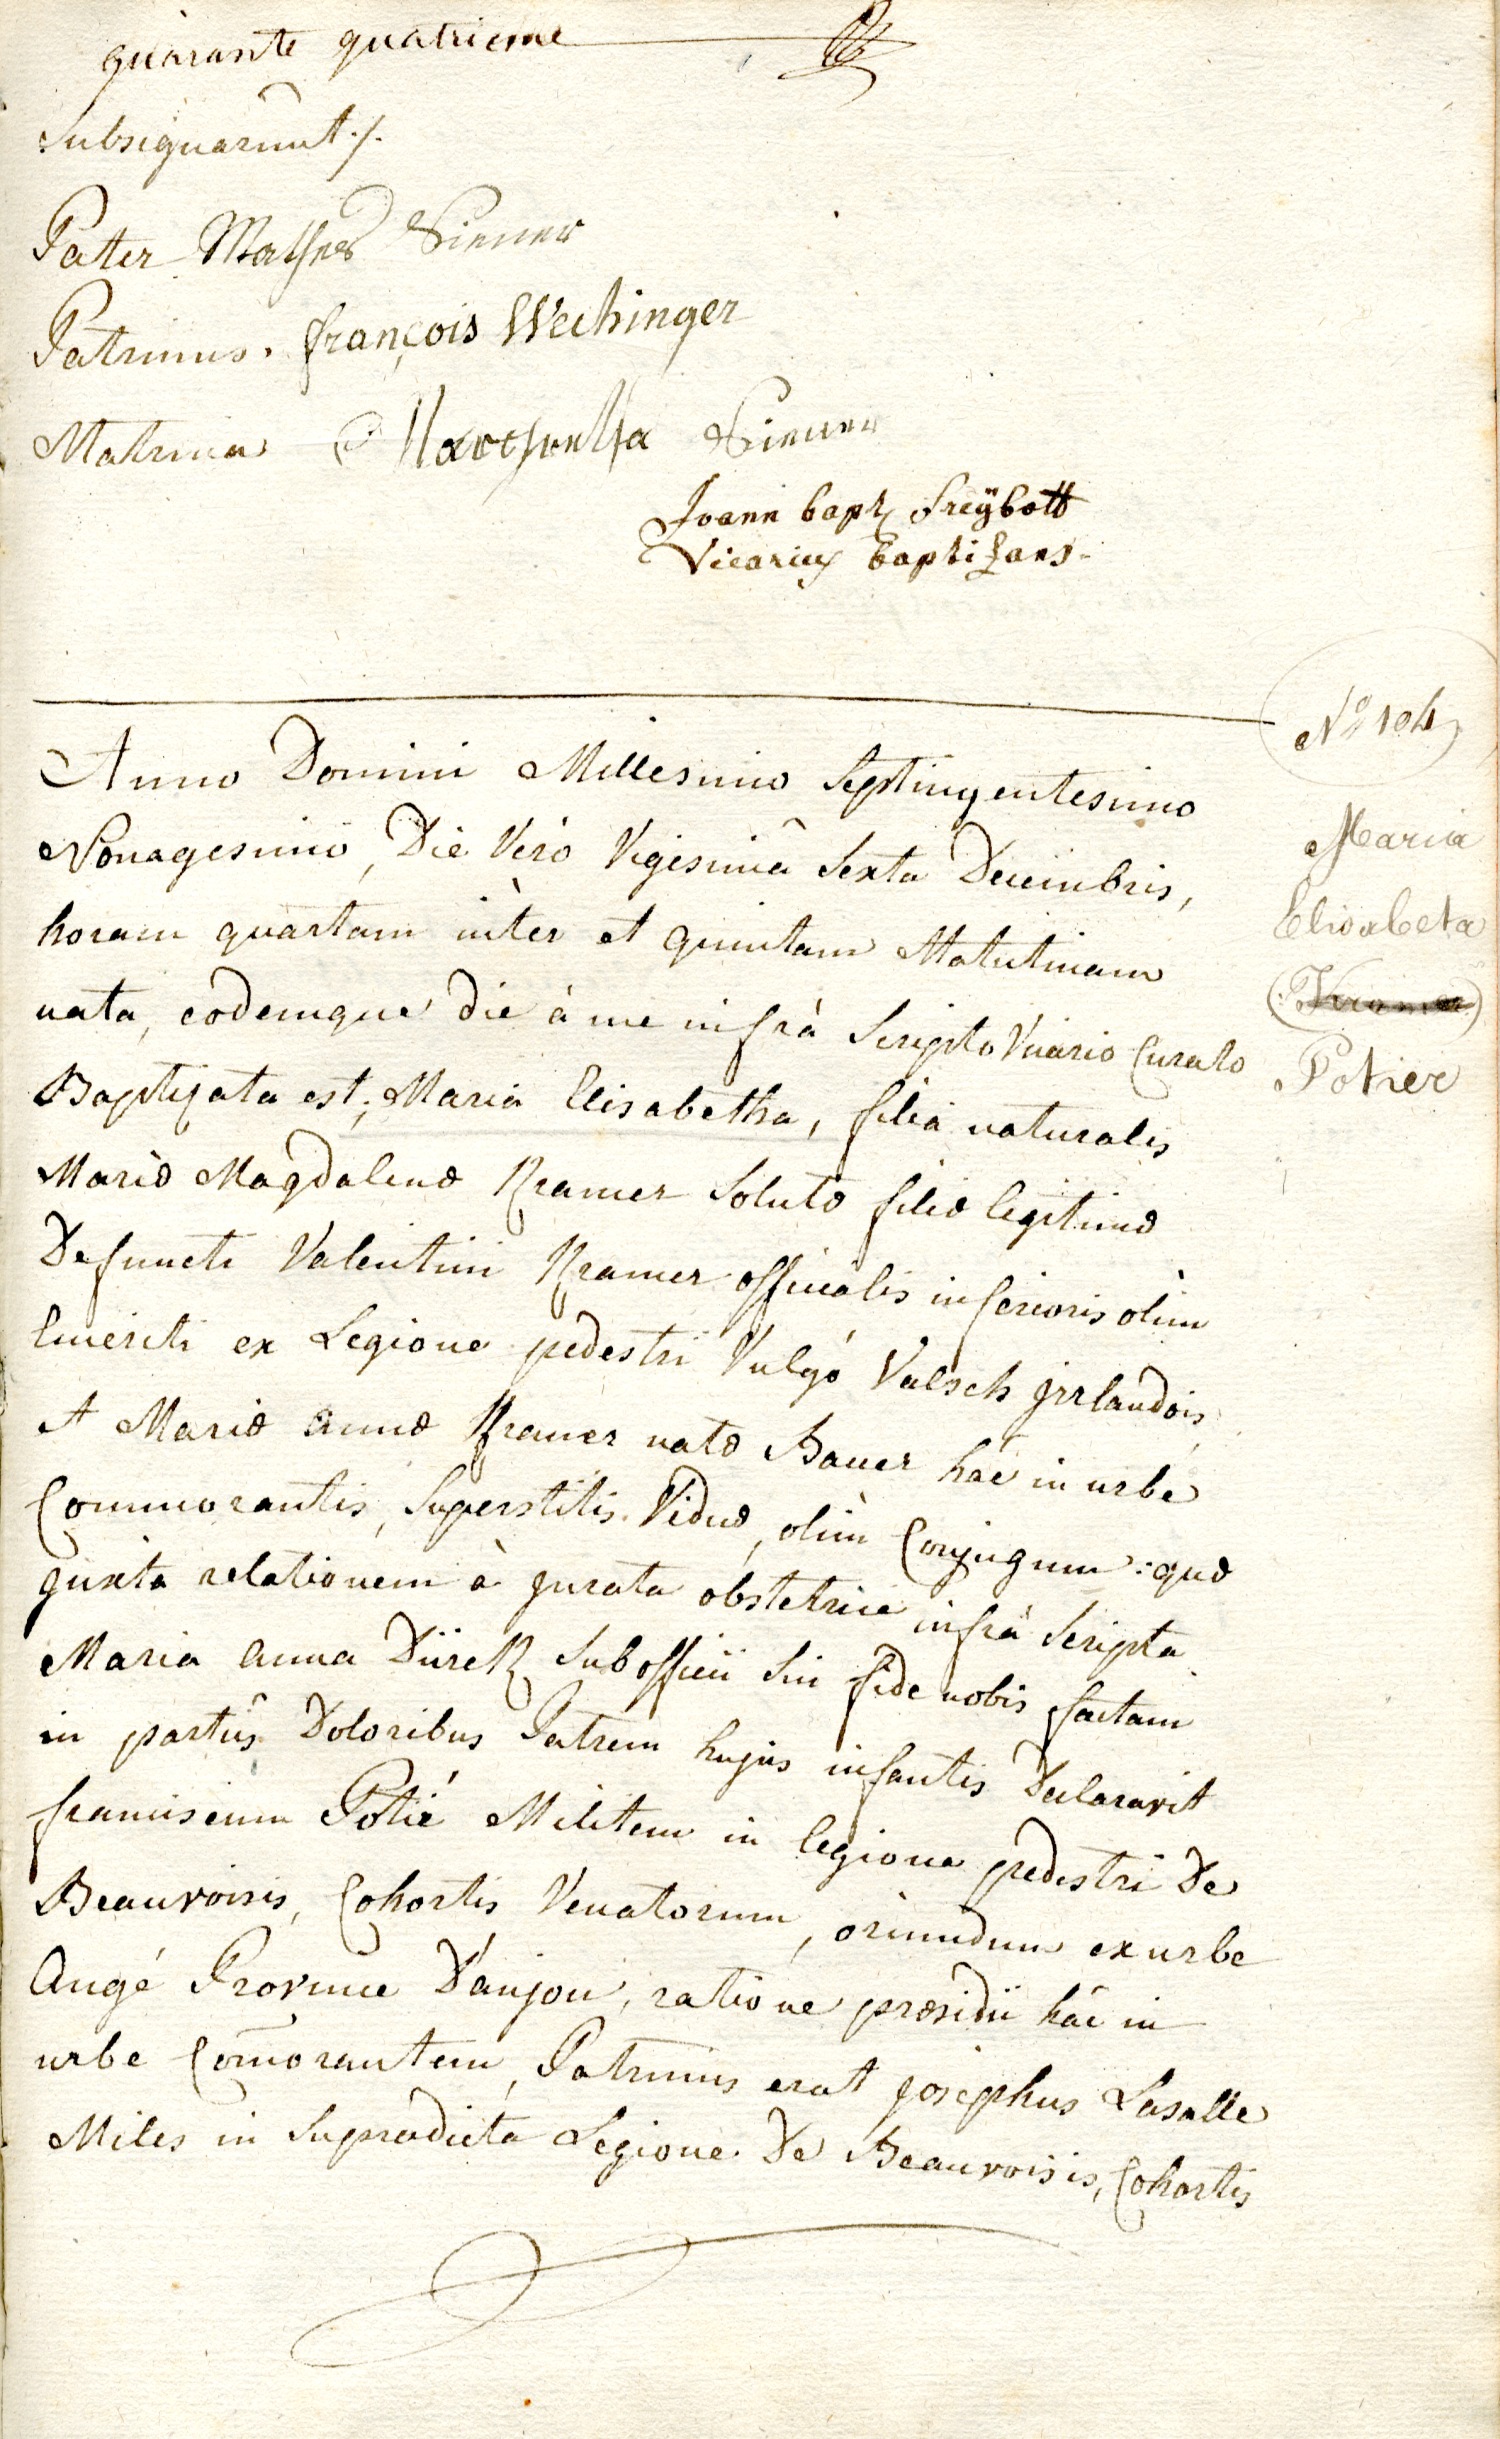 quarante quatrieme
Subsignarunt ./.
Pater Mathes Siener
Patrinus. françois Wechinger
Matrina Siener
Joann bapt Freÿbott
Vicarius baptisans.
Nº 104
Anno Domini Millesimo Septingentesimo
Nonagesimo, Die Verò Vigesimâ Sexta Decembris,
horam quartam intèr et quintam Matutinam
nata, eodemque die à me infrà Scripto Vicario Curato
Baptizata est; Maria Elisabetha, filia naturalis
Mariæ Magdalenæ Kramer Solutæ filiæ legitimæ
Defuncti Valentini Kramer officialis inferioris olim
Emeriti ex Legione pedestri Vulgò Valsch jrrlandois,
et Mariæ annæ Kramer natæ Bauer hâc in urbe
Commorantis, Superstitis Viduæ, olim Conjugum: quæ
juxta relationem à jurata obstetrice infrà Scripta
Maria anna Dürck Sub officii Sui fide nobis factam
in partûs Doloribus Patrem hujus infantis Declaravit
franciscum Potié Militem in legione pedestri De
Beauvoisis, Cohortis Venatorum, oriundum ex urbe
Angé Provinciæ D'anjou, ratione præsidii hâc in
urbe Com̄orantem, Patrinus erat josephus Lasalle
Miles in Supradicta Legione De Beauvoisis, Cohortis
Maria
Elisabeta
Potier